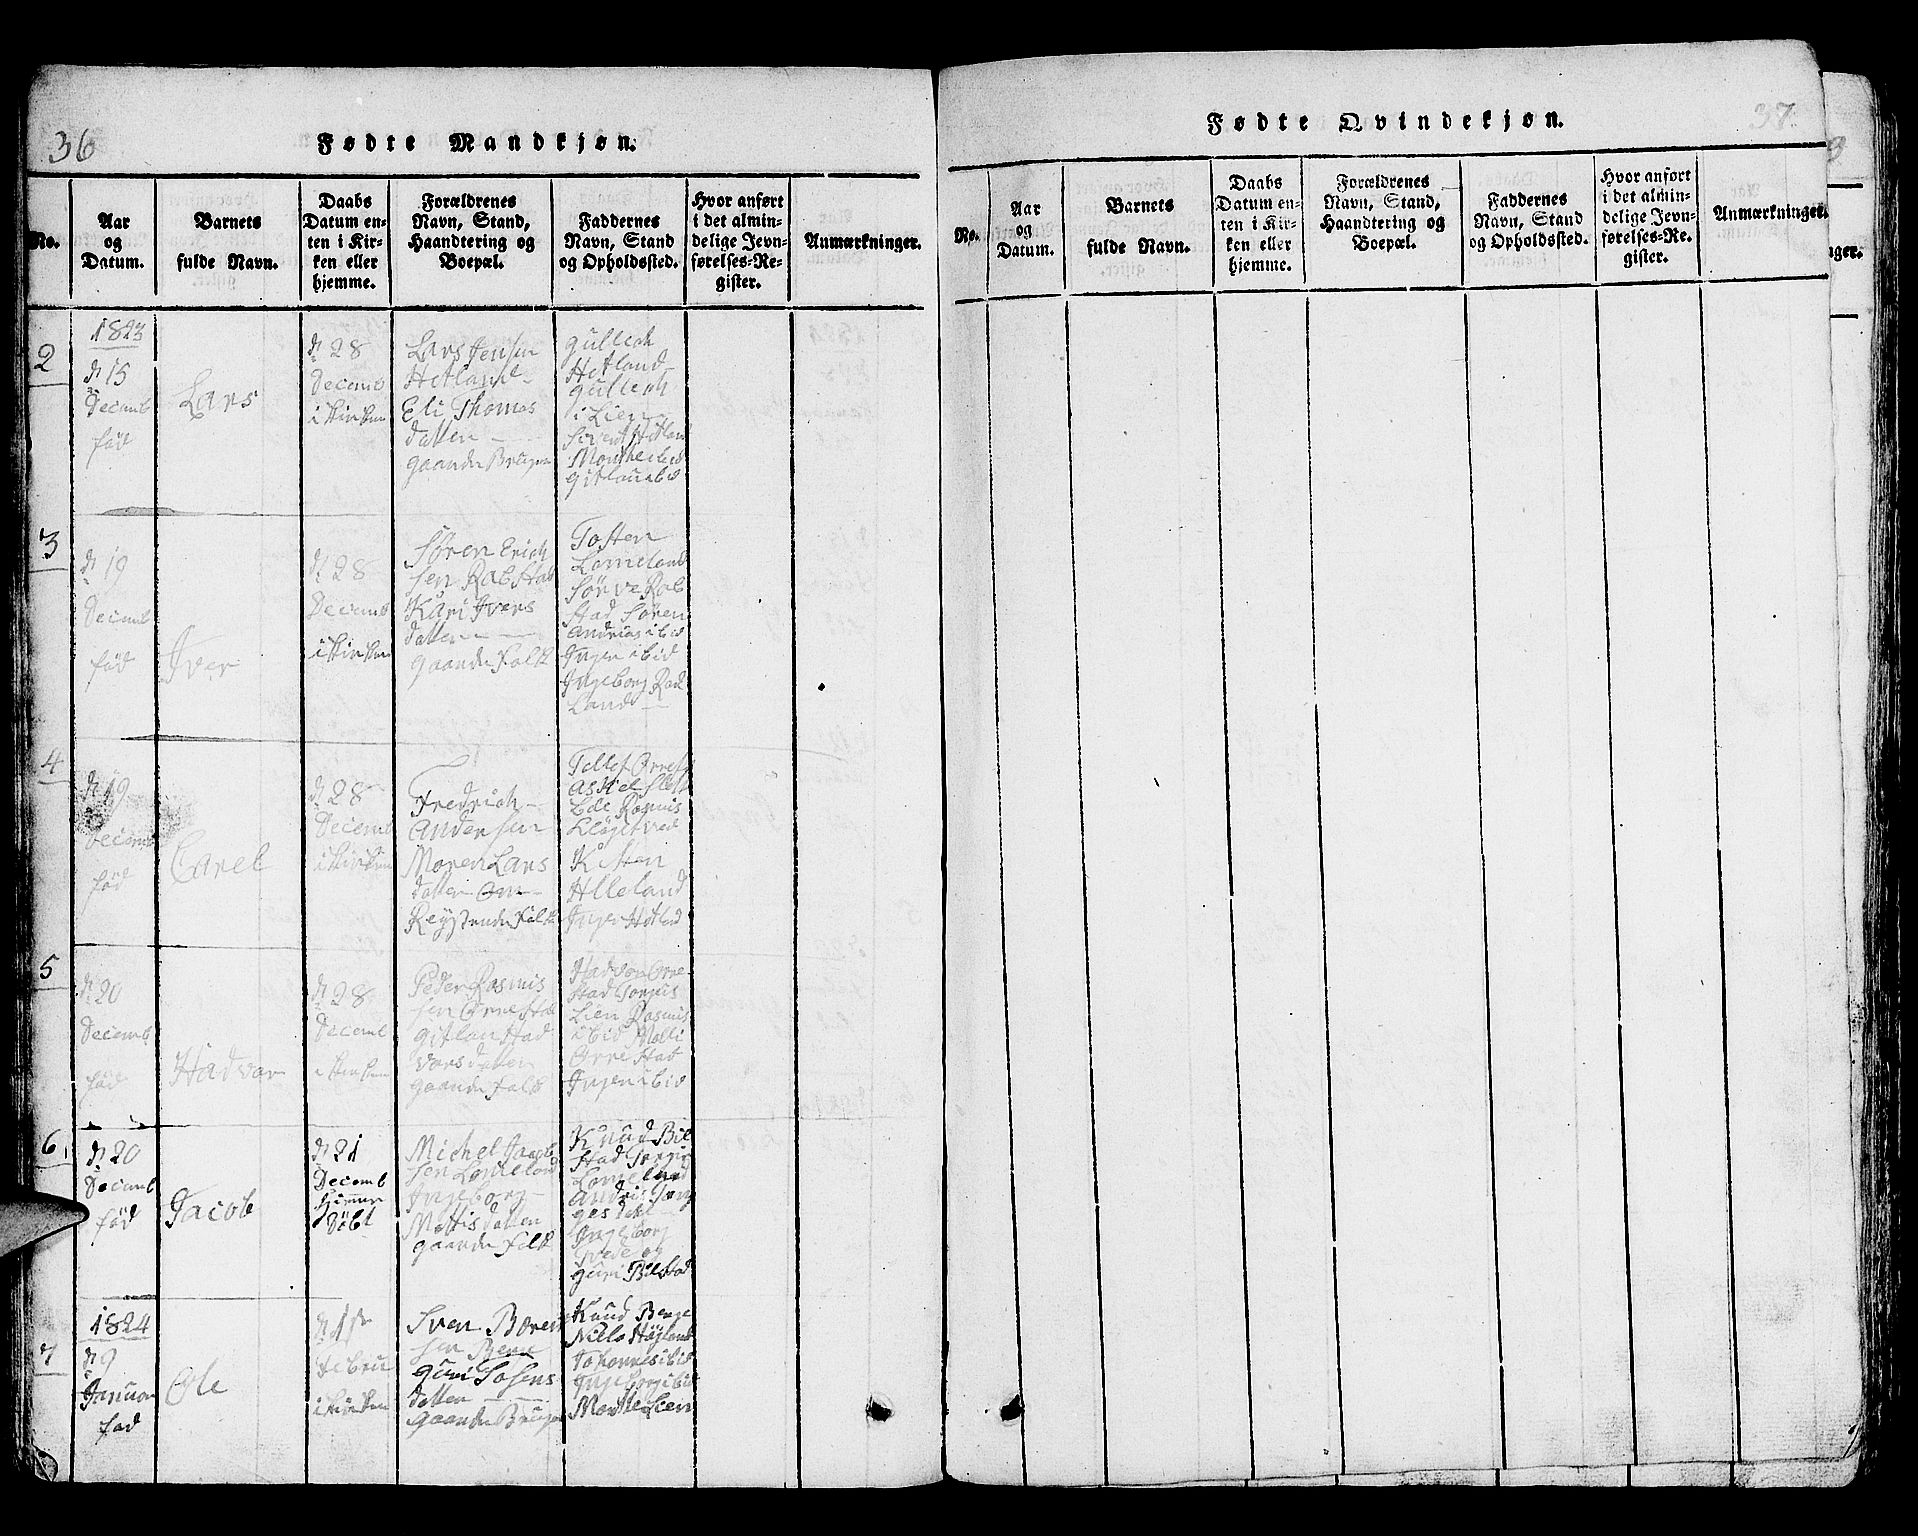 36
Fødte Mandkjøn.
No.
Aar
og
Datum.
Barnets
fulde Navn.
Daabs
Datum en-
ten i Kir-
ken eller
hjemme.
Forældrenes
Navn, Stand,
Haandtering og
Boepæl.
Faddernes
Navn, Stand
og Opholdssted.
Hvor anført
i det almin-
delige Jevn-
førelses-Re-
gister.
Anmærkninger.
2
1823
d 15
Decemb
fød
Lars
d 28
Decemb
i Kirken
Lars Jensen
Hetland
Eli Thomas
datter
gaande Bruger
gullech
Hetland
gullech
i Lien
Sivert Hetlan
Marthe ibid
gitlau ibid
3
d 19
Decemb
fød
Iver
d 28
Decemb
i Kirken
Søren Erich
sen Rabstad
Kari Ivers
datter
gaande Folk
Tosten
Lomeland
Sørve Rab
stad Søren
Andrias ibid
Inger ibid
Ingeborg Rad
Land
4
d 19
Decemb
fød
Carel
d 28
Decemb
i Kirken
Fredrich
Andersen
Maren Lars
datter Om
Reysende Folk
Tellef Orrest
Askiel
Ede Rasmus
Kisten
Helleland
Inger Hetled
5
d 20
Decemb
fød
Hadvar
d 28
Decemb
i Kirken
Peder Rasmus
sen Orrestad
gitlau Had
vars datter
gaande Folk
Hadvar Orre
stad Torgus
Lien Rasmus
ibid Malli
Orrestad
Inger ibid
6
d 20
Decemb
fød
Jacob
d 21
Decemb
Himme
Döbt
Michel Jacob
sen Lomeland
Ingeborg
Mattis datter
gaande Folk
Knud Bil
stad Torgus
Lomeland
Andri
Ingeborg
og
guri Bilstad
7
1824
d 9
Januar
fød
Ole
d 1
Febru
i Kirken
Sven Boren
sen Berge
guri Tosens
datter
gaande Bruger
Knud Berge
Niels Højland
Johannes ibid
Ingeborg ibid
Marthe Lien
37
Fødte Qvindekjøn.
No.
Aar
og
Datum.
Barnets
fulde Navn.
Daabs
Datum en-
ten i Kir-
ken eller
hjemme.
Forældrenes
Navn, Stand,
Haandtering og
Boepæl.
Faddernes
Navn, Stand
og Opholdssted.
Hvor anført
i det almin-
delige Jevn-
førelses-Re-
gister.
Anmærkninger.
nger.